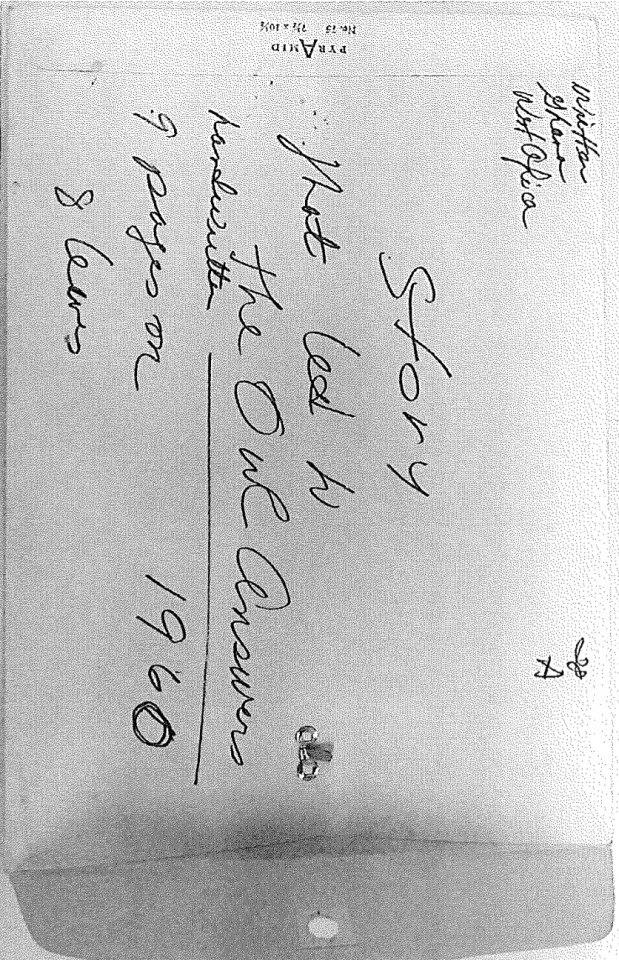 Written
Ghana
West Africa
Story
that led to
The Owl Answers
handwritten
9 pages on
8 leaves
1960
PYRAMID
No. 75 7½ x 10½